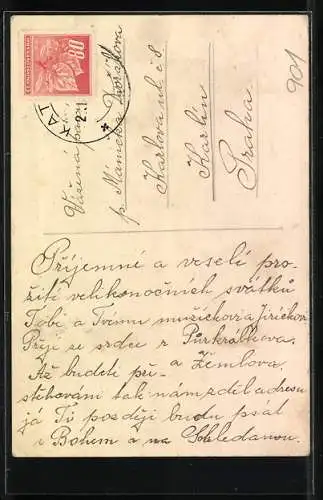 ČESKOSLOVENSKO
80
KAT
2.1
Vážená paní
p. Mámcka Dvořáková
Karlova ul. č 8
Karlín
Praha
901
Příjemné a veselé pro-
žití velikonočních svátků
Tobi a Tvému mužíčkovi a Jiříčkovi
Přejí ze srdce z Purkrábkova.
a Žemlova.
Až budete pře-
stěhovaní tak nám zděl adresu
já Ti později budu psát
s Bohem a na Schledanou.